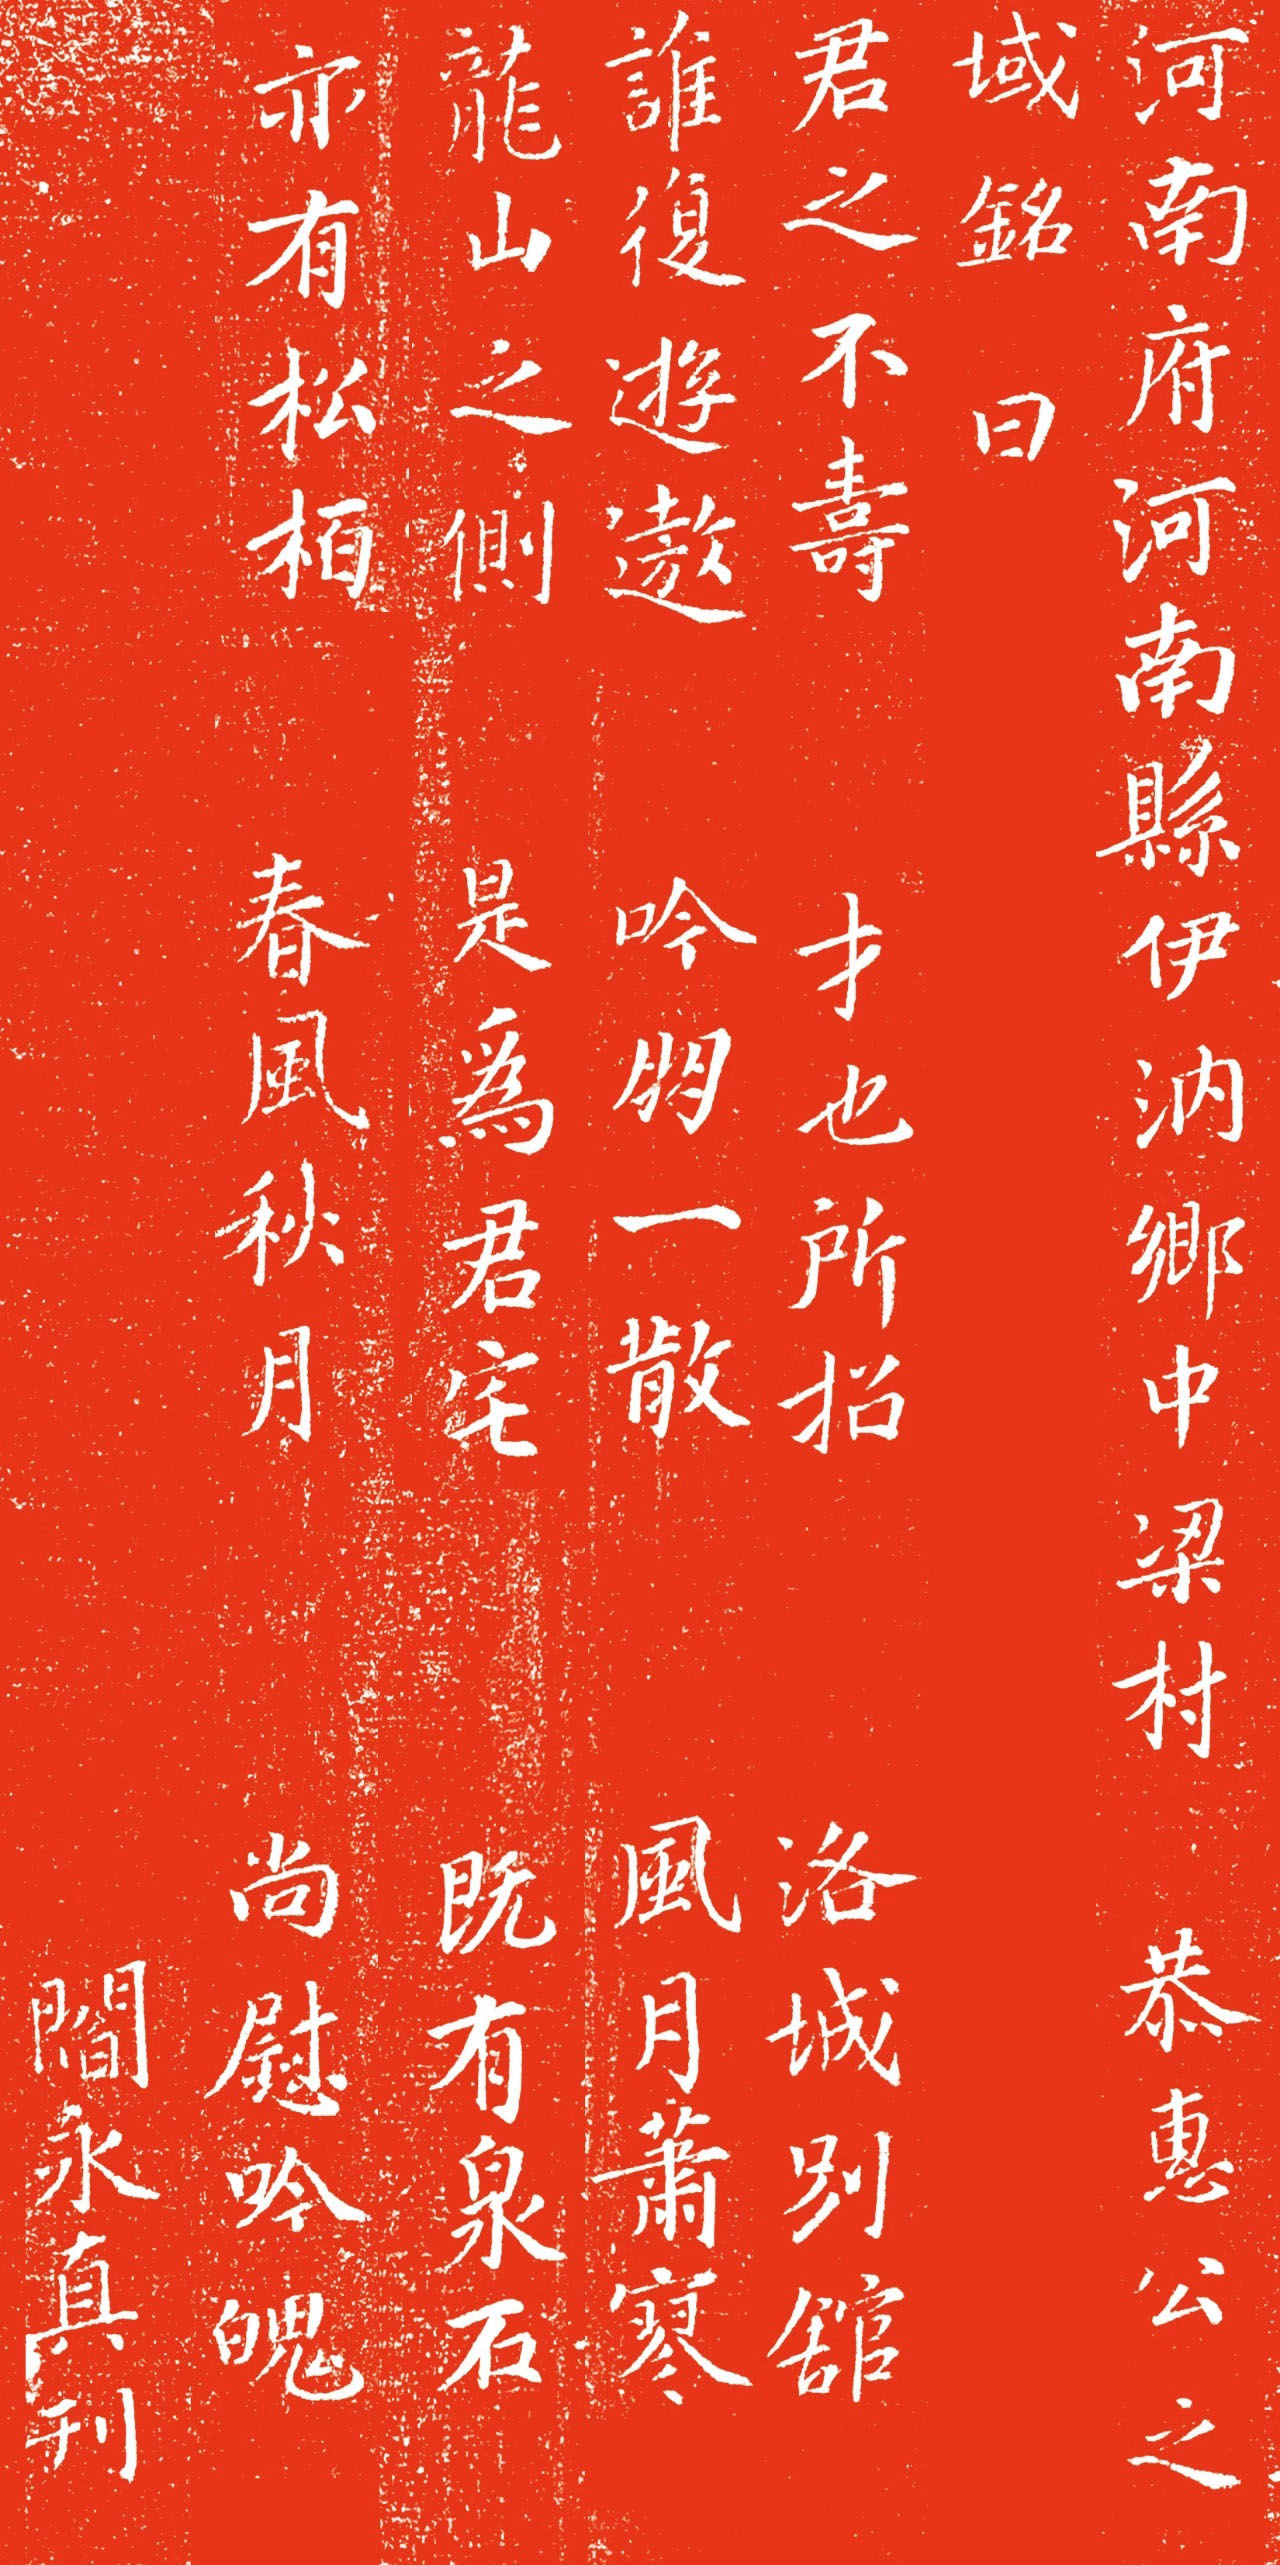 河南府河南縣伊汭鄉中梁村 恭惠公之
域銘曰
君之不壽 才也所招 洛城別舘
誰復遊遨 吟朋一散 風月蕭寥
龍山之側 是爲君宅 既有泉石
亦有松柏 春風秋月 尚慰吟魄
閻永真刊